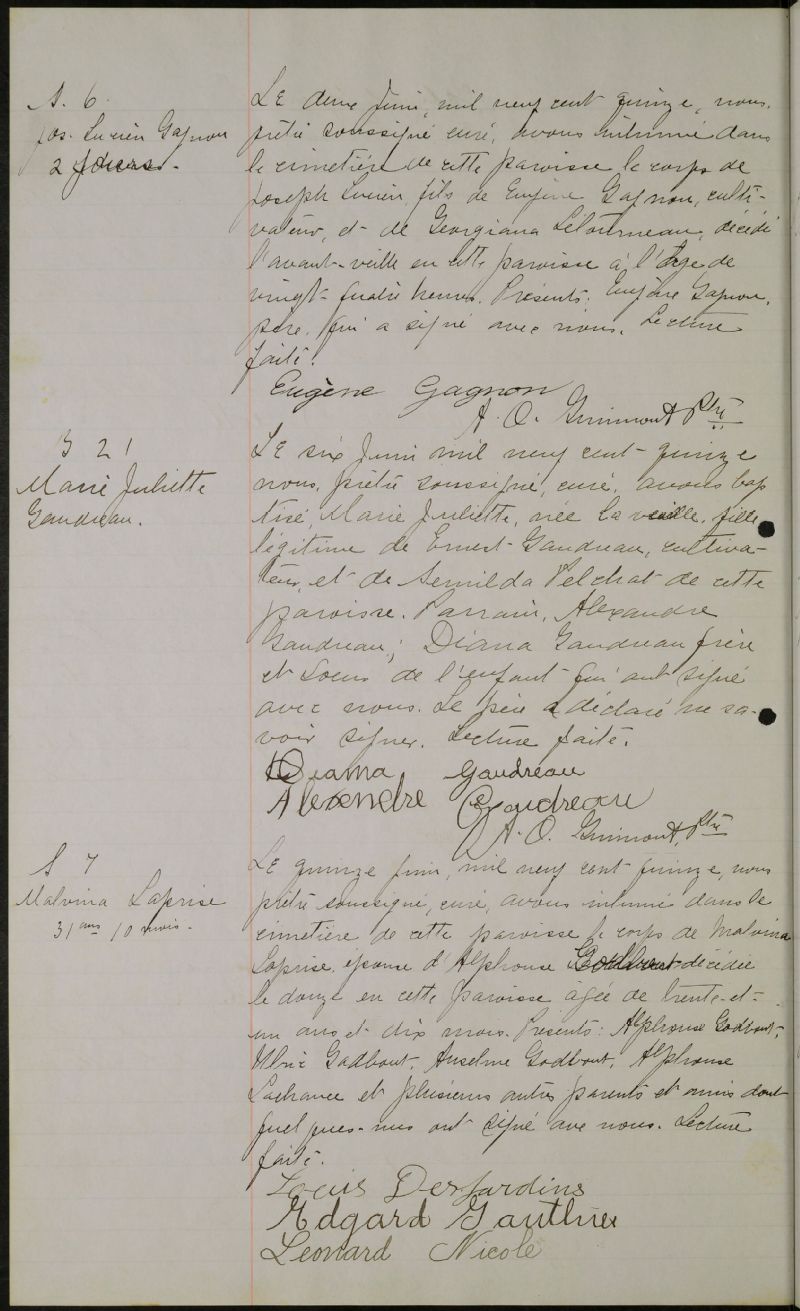 S. 6.
Jos. Lucien Gagnon
2 jours.
Le deux juin, mil neuf cent quinze, nous,
prêtre soussigné curé, avons inhumé dans
le cimetière de cette paroisse le corps de
Joseph Lucien, fils de Eugène Gagnon, culti-
vateur, et de Georgiana Létourneau, décédé
l'avant-veille en cette paroisse à l'âge de
vingt-quatre heures. Présents: Eugène Gagnon,
père, qui a signé avec nous. Lecture
faite.
Eugène Gagnon
A. O. Guimont Ptre
B 21
Marie Juliette
Gaudreau.
Le six juin mil neuf cent-quinze
nous, prêtre soussigné, curé, avons bap
tisé, Marie Juliette, née la veille, fille
légitime de Ernest Gaudreau, cultiva-
teur, et de Semilda Pelchat de cette
paroisse. Parrain, Alexandre
Gaudreau; Diana Gaudreau frère
et soeur de l'enfant qui ont signé
avec nous. Le père a déclaré ne sa-
voir signer. Lecture faite.
Diana Gaudreau
Alexendre Gaudreau
A. O. Guimont, Ptre
S 7
Malvina Laprise
31 ans 10 mois.
Le quinze juin, mil neuf cent quinze, nous
prêtre soussigné, curé, avons inhumé dans le
cimetière de cette paroisse le corps de Malvina
Laprise, épouse d'Alphonse Godbout décédée
le douze en cette paroisse âgée de trente-et-
un ans et dix mois. Présents: Alphonse Godbout,
Ulric Godbout, Anselme Godbout, Alphonse
Lachance et plusieurs autres parents et amis dont
quelques-uns ont signé avec nous. Lecture
faite.
Louis Desjardins
Edgard Gauthier
Leonard Nicole